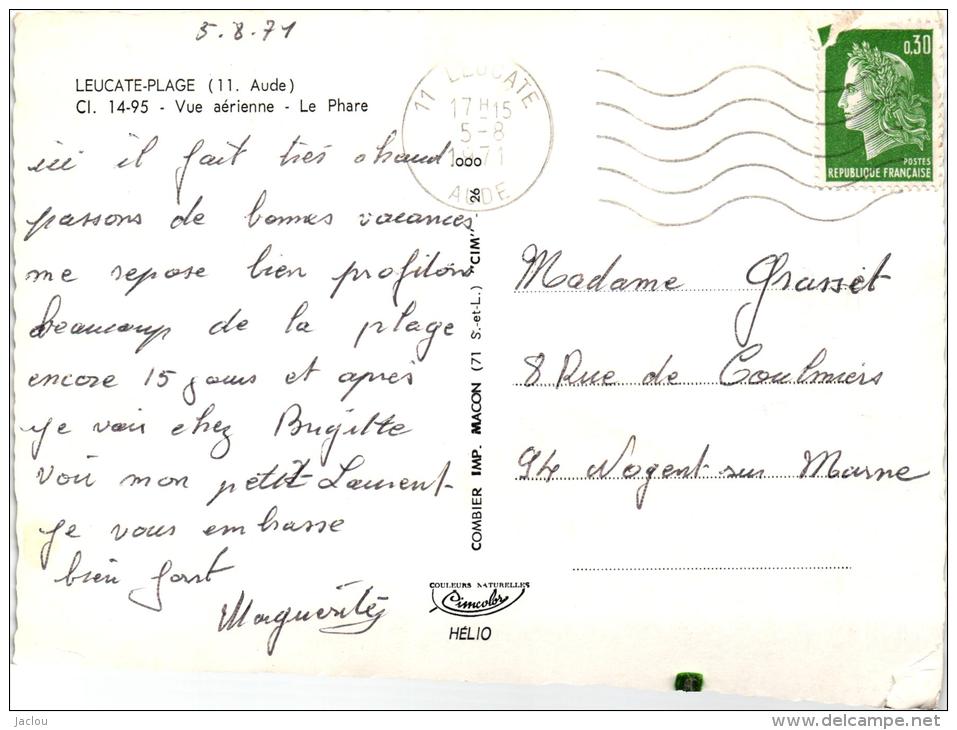 5.8.71
LEUCATE-PLAGE (11. Aude)
CI. 14-95 - Vue aérienne - Le Phare
ici il fait très chaud
passons de bonnes vacances
me repose bien profitons
beaucoup de la plage
encore 15 jours et après
je vais chez Brigitte
voir mon petit Laurent
Je vous embrasse
bien fort
Marguerite
11 LEUCATE
17 H 15
5-8
1971
AUDE
0,30
POSTES
REPUBLIQUE FRANÇAISE
Madame Grasset
8 Rue de Coulmiers
94 Nogent-sur Marne
COMBIER IMP. MACON (71 S.-et-L.) "CIM" 26
COULEURS NATURELLES
Cimcolor
HÉLIO
Jaclou
www.delcampe.net